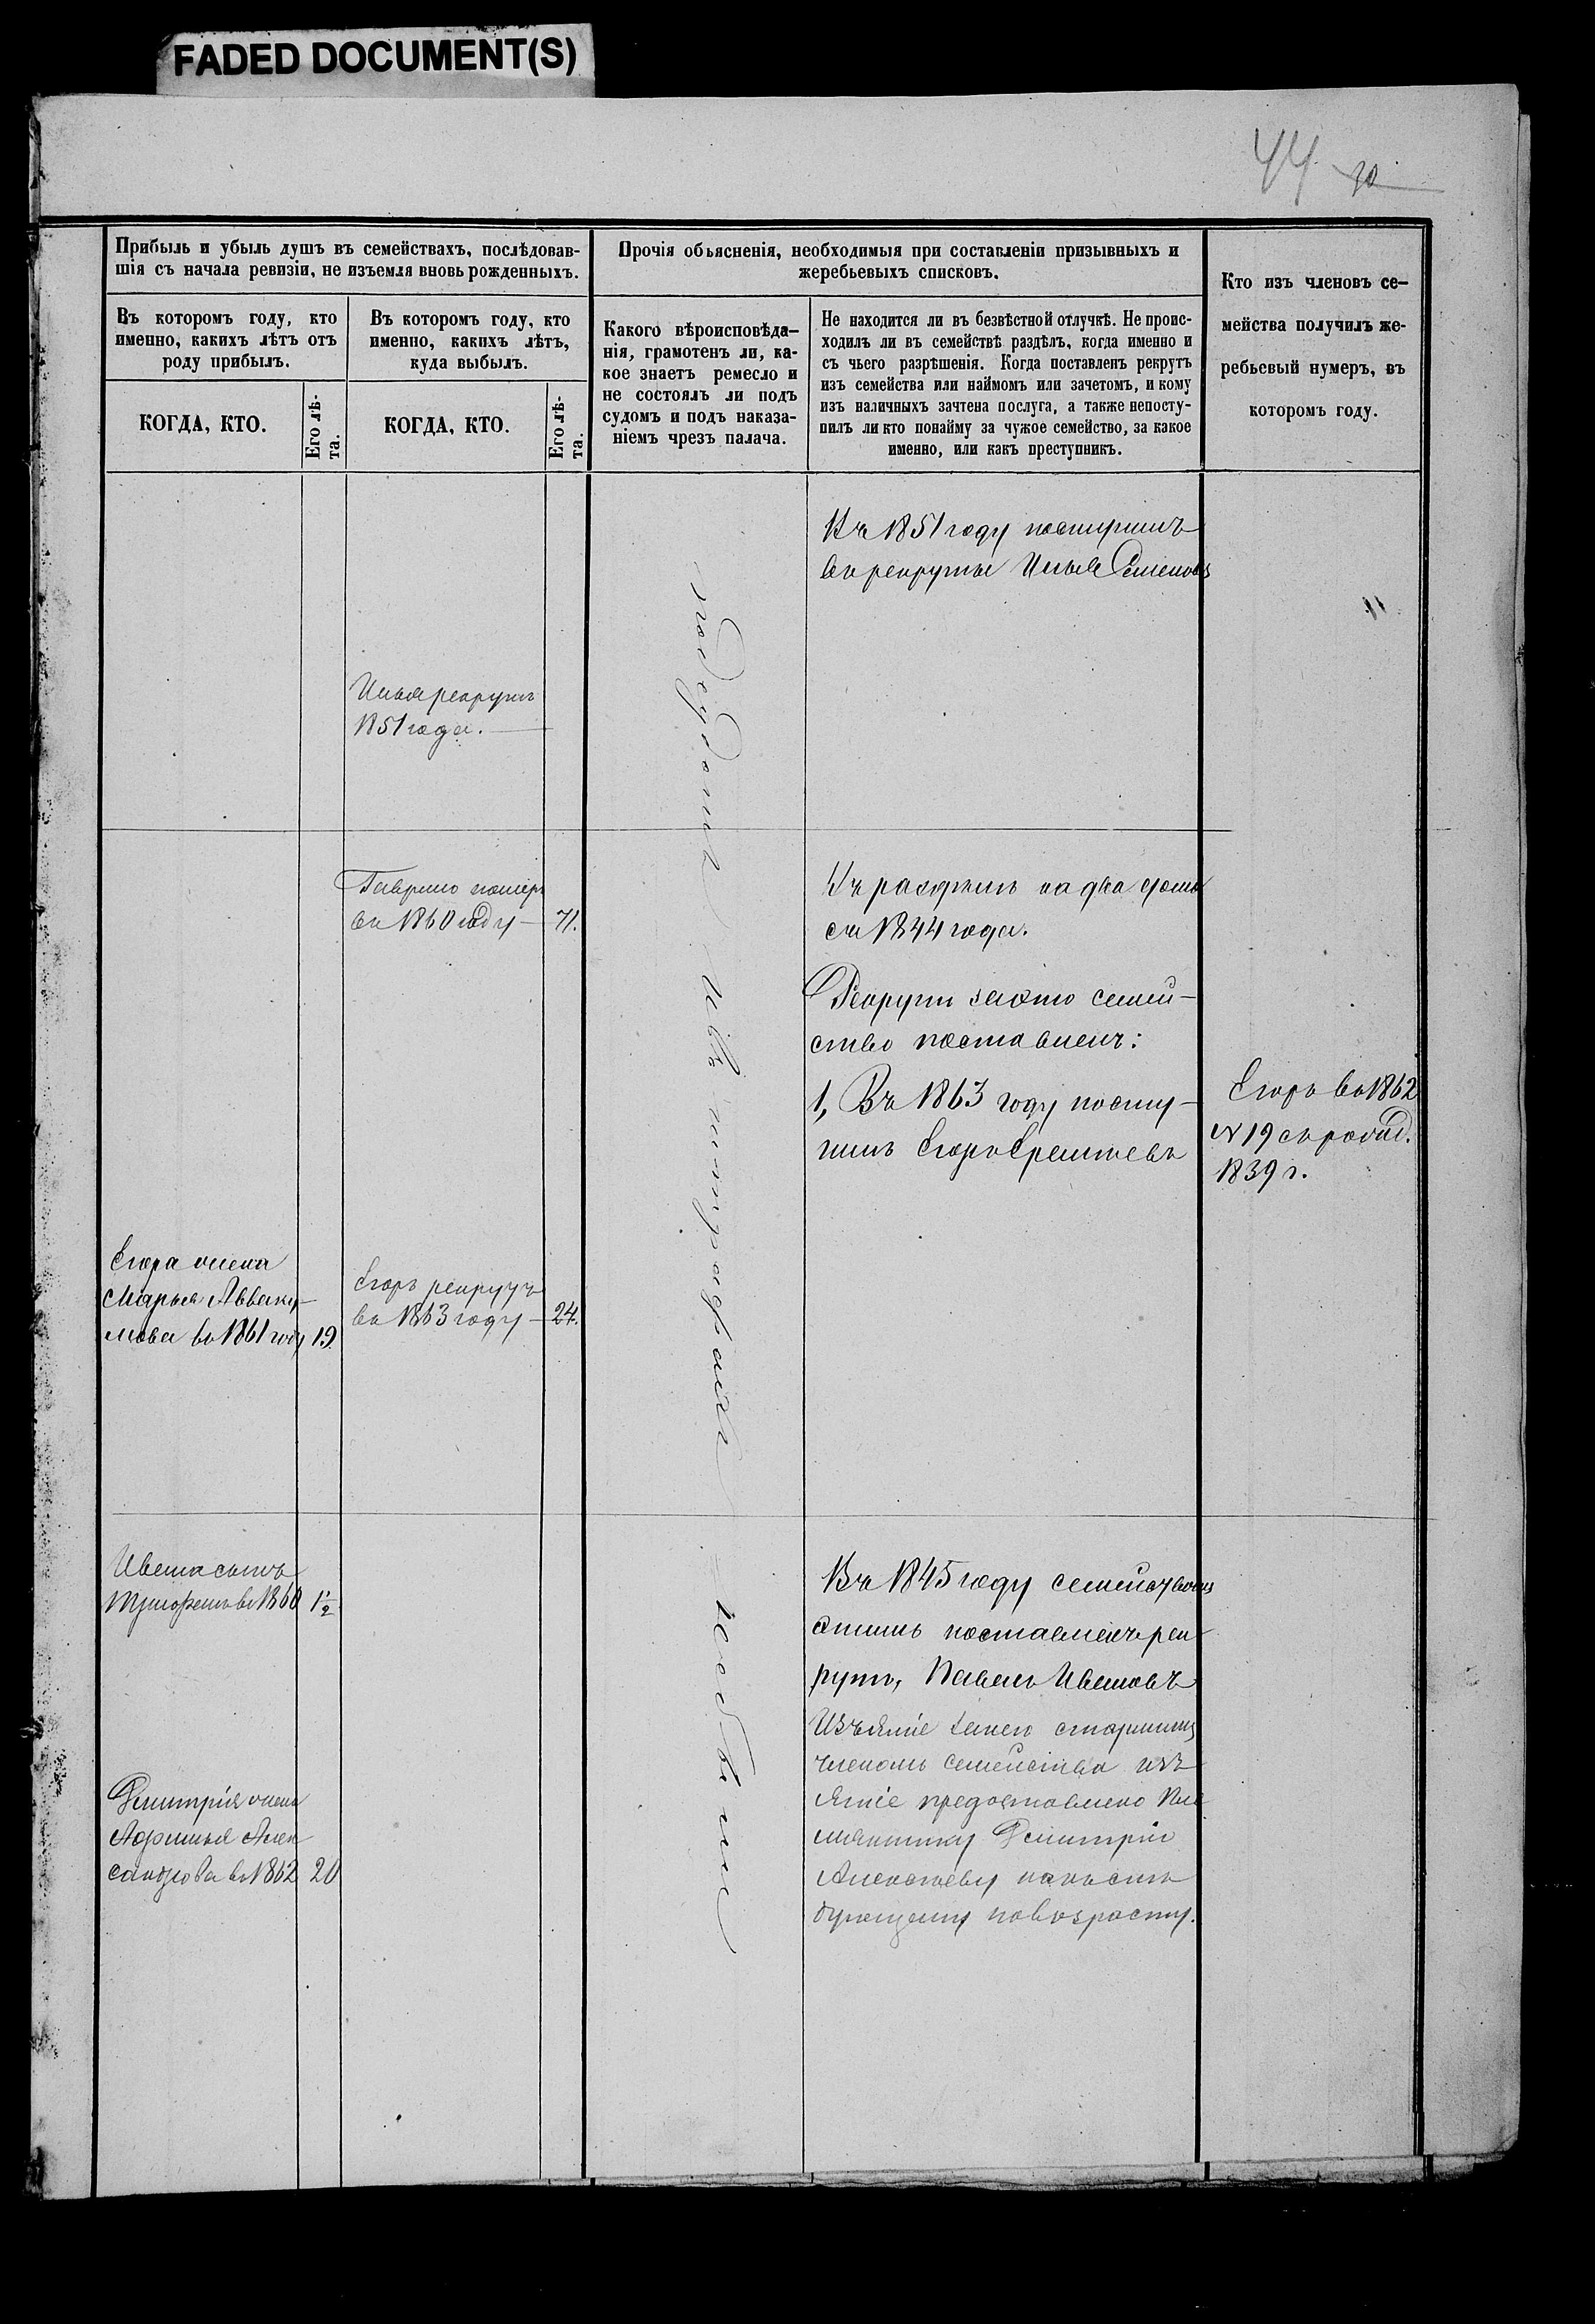 FADED DOCUMENT(S)
44 30
Прибыль и убыль душъ въ семействахъ, послѣдовав-
шія съ начала ревизіи, не изъемля вновь рожденныхъ.
Въ которомъ году, кто
именно, какихъ лѣтъ отъ
роду прибылъ.
КОГДА, КТО.
Его лѣ-
та.
Въ которомъ году, кто
именно, какихъ лѣтъ,
куда выбылъ.
КОГДА, КТО.
Его лѣ-
та.
Прочія объясненія, необходимыя при составленіи призывныхъ и
жеребьевыхъ списковъ.
Какого вѣроисповѣда-
нія, грамотенъ ли, ка-
кое знаетъ ремесло и
не состоялъ ли подъ
судомъ и подъ наказа-
ніемъ чрезъ палача.
Не находится ли въ безвѣстной отлучкѣ. Не проис-
ходилъ ли въ семействѣ раздѣлъ, когда именно и
съ чьего разрѣшенія. Когда поставленъ рекрутъ
изъ семейства или наймомъ или зачетомъ, и кому
изъ наличныхъ зачтена послуга, а также непосту-
пилъ ли кто понайму за чужое семейство, за какое
именно, или какъ преступникъ.
Кто изъ членовъ се-
мейства получилъ же-
ребьевый нумеръ, въ
которомъ году.
Въ 1851 году поступилъ
въ рекруты Илья Семеновъ
Илья рекрутъ
1851 года.
Гаврило померъ
въ 1860 году — 71.
Въ раздѣлъ на два дома
съ 1844 года.
Рекрутъ за это семей-
ство поставленъ:
1, Въ 1863 году посту-
пилъ Егоръ
Егоръ въ 1862
№ 19 съ
1839 г.
Егора жена
Марья Авваку-
мова въ 1861 году 19.
Егоръ рекрутъ
въ 1863 году — 24.
Ивана сынъ
въ 1860 1½
Въ 1845 году
поставленъ рек-
рутъ, Павелъ Ивановъ
старшимъ
членомъ семейства изъ-
ятіе предоставлено Пле-
мяннику Дмитрію
Алексѣеву
повозрасту.
Дмитрія жена
Алек-
сандрова въ 1862 20